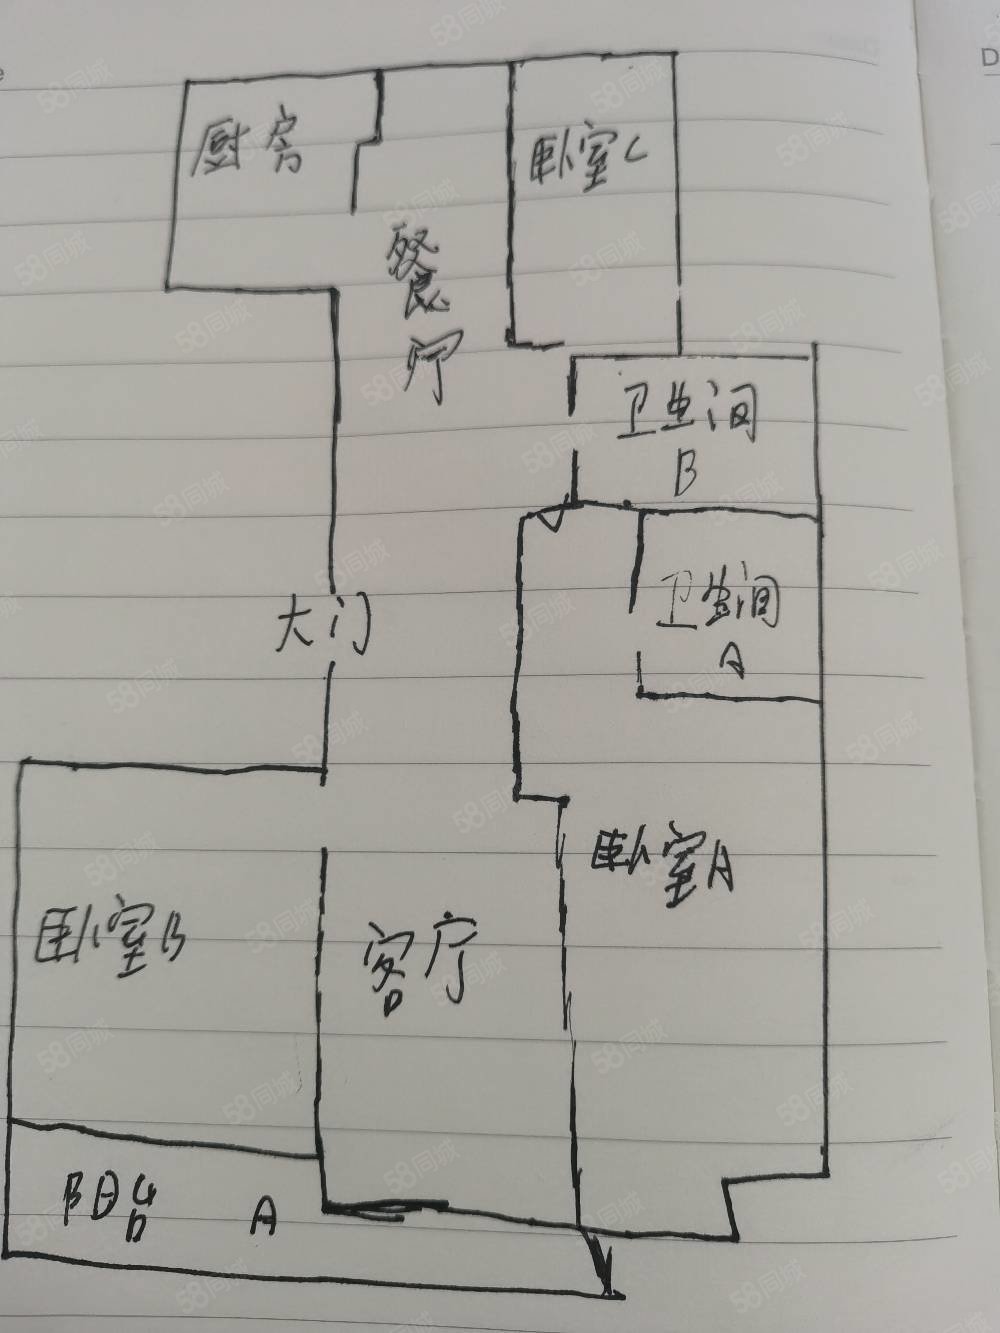 厨房
卧室C
餐
厅
卫生间
B
大门
卫生间
A
卧室A
卧室B
客厅
阳台 A
58同城
D
e